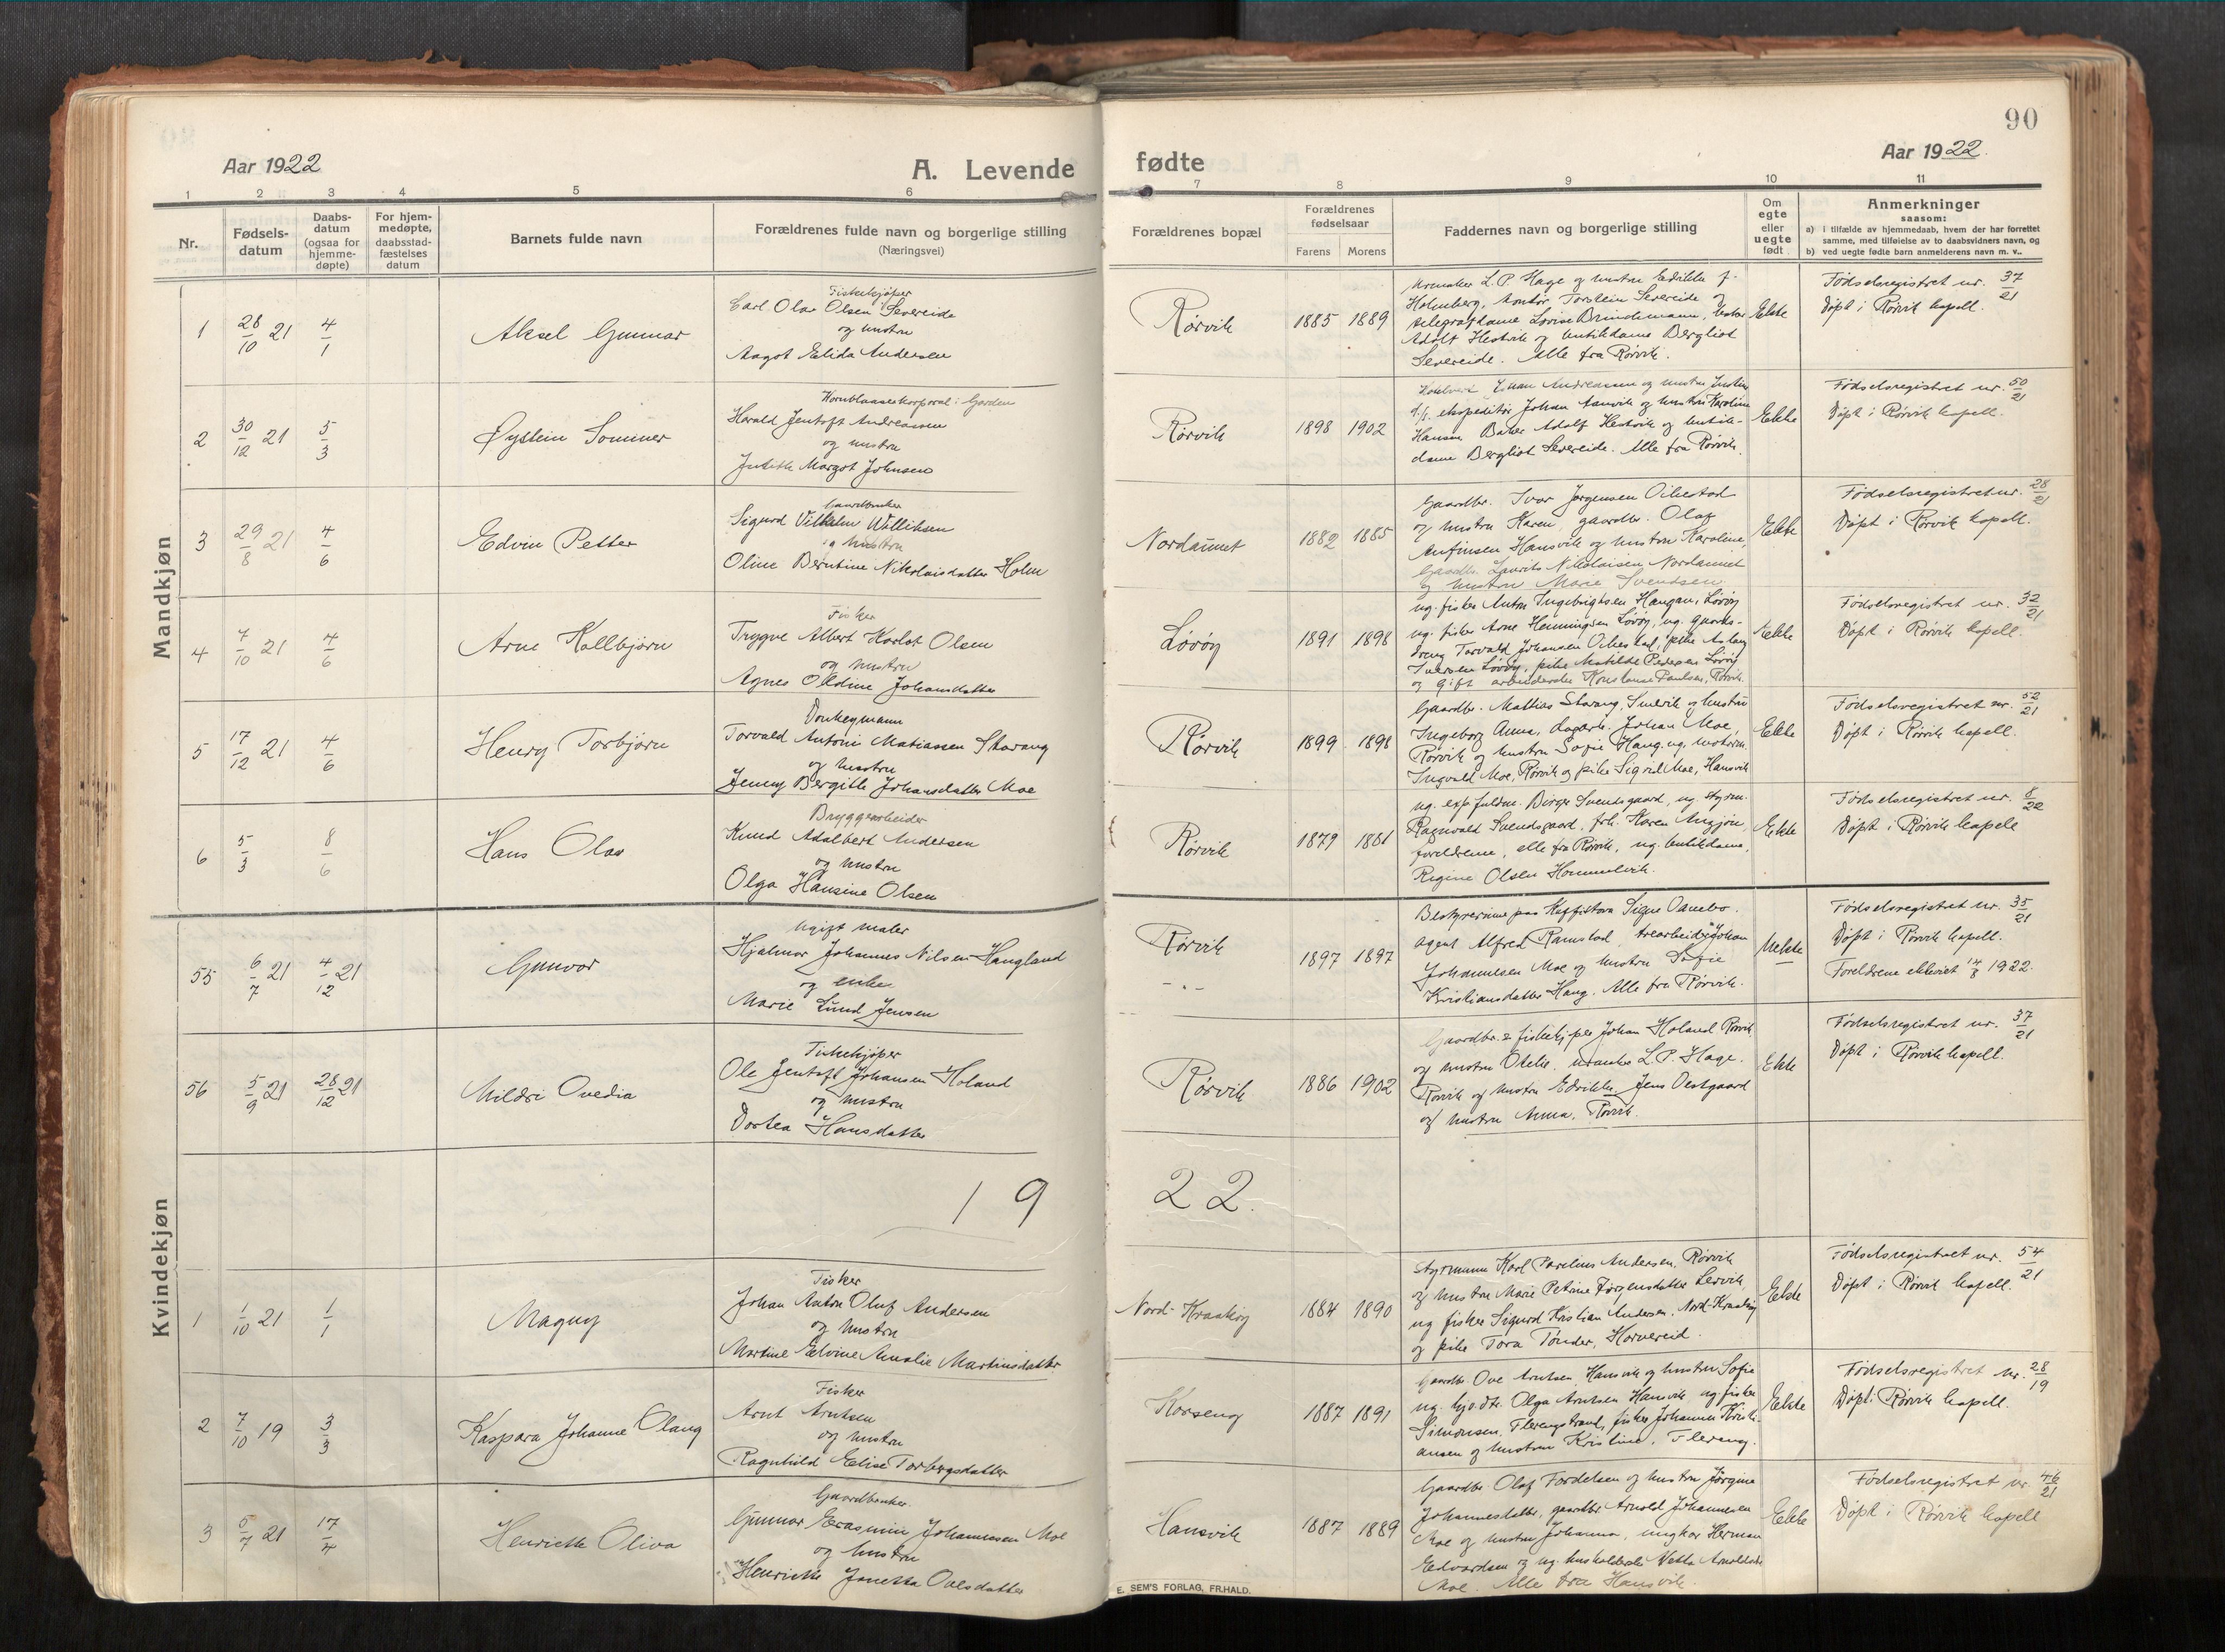 90
Aar 1922
A. Levende
fødte
Aar 1922.
1 2 3 4 5 6 7 8 9 10 11
Nr.
Fødsels-
datum
Daabs-
datum
(ogsaa for
hjemme-
døpte)
For hjem-
medøpte,
daabsstad-
fæstelses
datum
Barnets fulde navn
Forældrenes fulde navn og borgerlige stilling
(Næringsvei)
Forældrenes bopæl
Forældrenes
fødselsaar
Farens Morens
Faddernes navn og borgerlige stilling
Om
egte
eller
uegte
født
Anmerkninger
saasom:
a) i tilfælde av hjemmedaab, hvem der har forrettet
samme, med tilføielse av to daabsvidners navn, og
b) ved uegte fødte barn anmelderens navn m. v..
Mandkjøn
1 28/10 21 4/1 Aksel Gunnar
Fiskekjøper
Carl Olav Olsen Severeide
og hustru
Aagot Elida Andersen
Rørvik 1885 1889
Urmaker L.P. Hage og hustru Edrikke f.
Holmberg, kontor. Torstein Severeide og
telegrafdame Lovise Brindemann,
Adolf Hestvik og butikdame Bergliot
Severeide. Alle fra Rørvik.
Ekte
Fødselsregistret nr. 37/21
Døpt i Rørvik kapell.
2 30/12 21 5/3 Øystein Sommer
Hornblaaserkorporal i Garden
Harald Jentoft Andreassen
og hustru
Judith Margot Johnsen
Rørvik 1898 1902
Johan Andreassen og hustru Justine
ekspeditør Johan Aanvik og hustru Karoline
Hansen Baker Adolf Hestvik og butik-
dame Bergliot Severeide. Alle fra Rørvik.
Ekte
Fødselsregistret nr. 50/21
Døpt i Rørvik kapell.
3 29/8 21 4/6 Edvin Petter
Gaardbruker
Sigurd Vilhelm Williksen
og hustru
Oline Berntine Nikolaisdatter Holm
Nordaunet 1882 1885
Gaardbr. Ivar Jørgensen Oihestad
og hustru Karen, gaardbr. Olaf
Anfinsen Hansvik og hustru Karoline,
Gaardbr. Laurits Nikolaisen Nordaunet
og hustru Marie Svendsen.
Ekte
Fødselsregistret nr. 28/21
Døpt i Rørvik kapell.
4 7/10 21 4/6 Arne Kollbjørn
Fisker
Trygve Albert Karlot Olsen
og hustru
Agnes Oldine Johansdatter
Løvøy 1891 1898
ug. fisker Anton Ingebrigtsen Haugan, Løvøy
ug. fisker Arne Henningsen Løvøy, ug. gaards-
dreng Torvald Johansen Oihestad, pike Aslaug
Iversen Løvøy, pike Matilde Pedersen Løvøy
og gift arbeiderske Konstanse Paulsen, Rørvik
Ekte
Fødselsregistret nr. 32/21
Døpt i Rørvik kapell.
5 17/12 21 4/6 Henry Torbjørn
Donkeymann
Torvald Antoni Matiassen Storang
og hustru
Jenny Bergitte Johansdatter Moe
Rørvik 1899 1898
Gaardbr. Mattias Storang, Snervik og hustru
Ingeborg Anna, dagarb. Johan Moe,
Rørvik og hustru Sofie Haug, ug. motorm.
Ingvald Moe, Rørvik og pike Sigrid Moe, Hansvik
Ekte
Fødselsregistret nr. 52/21
Døpt i Rørvik kapell.
6 5/3 8/6 Hans Olav
Bryggearbeider
Knud Adalbert Andersen
og hustru
Olga Hansine Olsen
Rørvik 1879 1881
ug. exp. fuldm. Birger Svendsgaard, ug. styrm.
Ragnvald Svendsgaard, frk. Karen Angjøn,
foreldrene, alle fra Rørvik, ug. butikdame,
Regine Olsen Hommelvik.
Ekte
Fødselsregistret nr. 8/22
Døpt i Rørvik kapell
Kvindekjøn
55 6/7 21 4/12 21 Gunvor
Ugift maler
Hjalmar Johannes Nilsen Haugland
og enke
Marie Lund Jensen
Rørvik 1897 1897
Bestyrerinne paa Kaffistova Signe Oanebo.
agent Alfred Ramstad, træarbeider Johan
Johannesen Moe og hustru Sofie
Kristiansdatter Haug. Alle fra Rørvik.
Uekte
Fødselsregistret nr. 35/21
Døpt i Rørvik kapell.
Foreldrene ekteviet 14/3 1922.
56 5/9 21 28/12 21 Mildri Ovedia
Fiskekjøper
Ole Jentoft Johansen Holand
og hustru
Dortea Hansdatter
Rørvik 1886 1902
Gaardbr. & fiskekjøper Johan Holand Rørvik
og hustru Otelie. urmaker L.P. Hage.
Rørvik og hustru Edrikke, Jens Oestgaard
og hustru Anna, Rørvik.
Ekte
Fødselsregistret nr. 37/21
Døpt i Rørvik kapell.
19 22.
1 1/10 21 1/1 Magny
Fisker
Johan Anton Oluf Andersen
og hustru
Martine Elvine Amalie Martinsdatter
Nord-Kraakøy 1884 1890
Styrmann Karl Parelius Andersen, Rørvik
og hustru Marie Petrine Jørgensdatter Lervik,
ug fisker Sigurd Kristian Andersen, Nord-Kraakøy
og pike Tora Tønder, Horvereid.
Ekte
Fødselsregistret nr. 54/21
Døpt i Rørvik kapell.
2 7/10 19 3/3 Kaspara Johanne Olaug
Fisker
Arnt Arntsen
og hustru
Ragnhild Elise Torbergsdatter
Horseng 1887 1891
Gaardbr Ove Arntsen, Hansvik og hustru Sofie
ug. hjv. dtr. Olga Arntsen Hansvik ug. fisker
Simonsen, Flerengstrand, fisker Johannes Kristi-
ansen og hustru Kristine, Flereng.
Ekte
Fødselsregistret nr. 28/19
Døpt i Rørvik kapell.
3 5/7 21 17/4 Henriette Oliva
Gaardbruker
Gunnar Erasmin Johannesen Moe
og hustru
Henriette Janetta Ovesdatter
Hansvik 1887 1889
Gaardbr Olaf Tordelsen og hustru Jørgine
Johannesdatter, gaardbr. Arnold Johannesen
Moe og hustru Johanna, ungkar Herman
Edvardsen og ug. husholderske Netta Arnoldsdtr
Moe. Alle fra Hansvik.
Ekte
Fødselsregistret nr. 46/21
Døpt i Rørvik kapell
E. SEM'S FORLAG, FR.HALD.